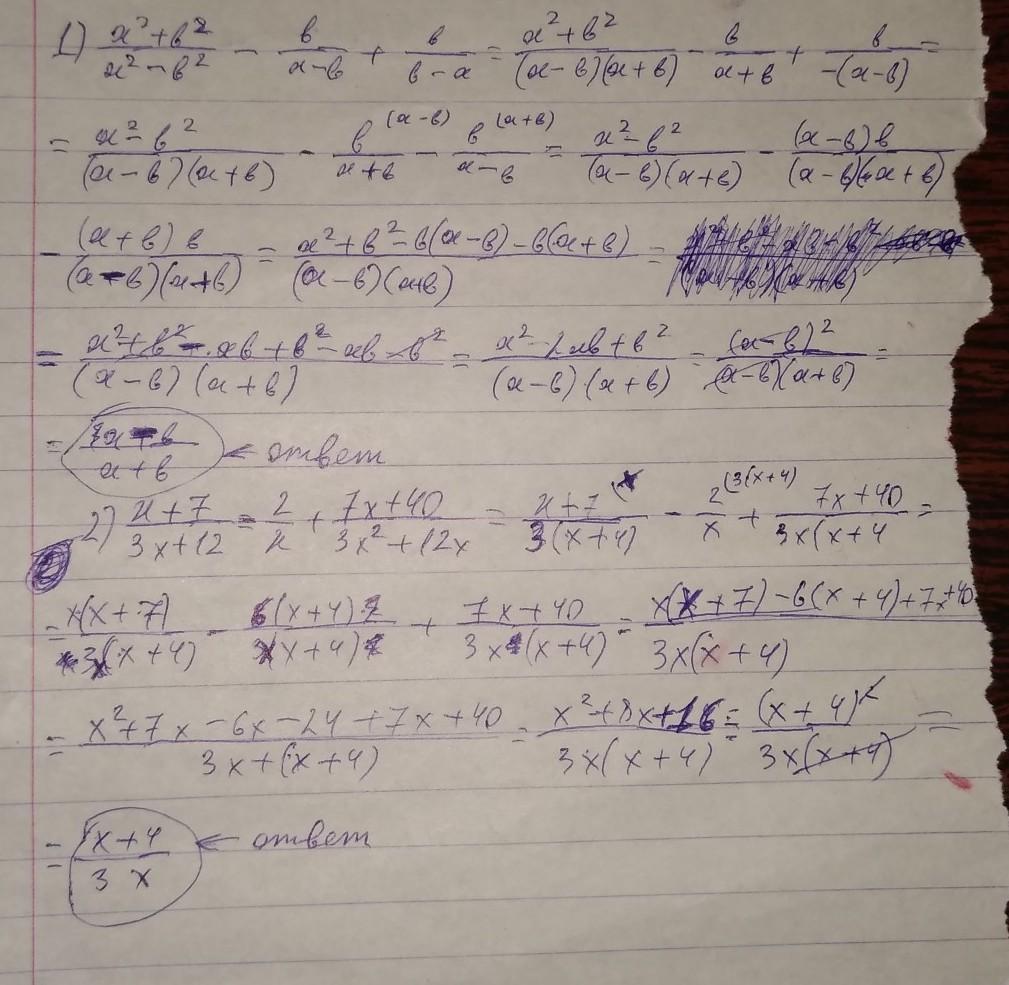 1) (a²+b²)/(a²-b²) - b/(a-b) + b/(b-a) = (a²+b²)/((a-b)(a+b)) - b/(a+b) + b/(-(a-b)) =
= (a²-b²)/((a-b)(a+b)) - b^(a-b)/(a+b) - b^(a+b)/(a-b) = (a²-b²)/((a-b)(a+b)) - ((a-b)b)/((a-b)(a+b))
- ((a+b)b)/((a-b)(a+b)) = (a²+b²-b(a-b)-b(a+b))/((a-b)(a+b)) =
= (a²+b²-ab+b²-ab-b²)/((a-b)(a+b)) = (a²-2ab+b²)/((a-b)·(a+b)) = (a-b)²/((a-b)(a+b)) =
= (a-b)/(a+b) ← ответ
2) (x+7)/(3x+12) = 2/x + (7x+40)/(3x²+12x) = (x+7)^(x/(3(x+4)) - 2^(3(x+4)/x + (7x+40)/(3x(x+4 =
= x(x+7)/(3x(x+4)) - 6(x+4)/(3x(x+4)) + (7x+40)/(3x(x+4)) = (x(x+7)-6(x+4)+7x+40)/(3x(x+4))
= (x²+7x-6x-24+7x+40)/(3x+(x+4)) = (x²+8x+16)/(3x(x+4)) = (x+4)²/(3x(x+4)) =
= (x+4)/(3x) ← ответ